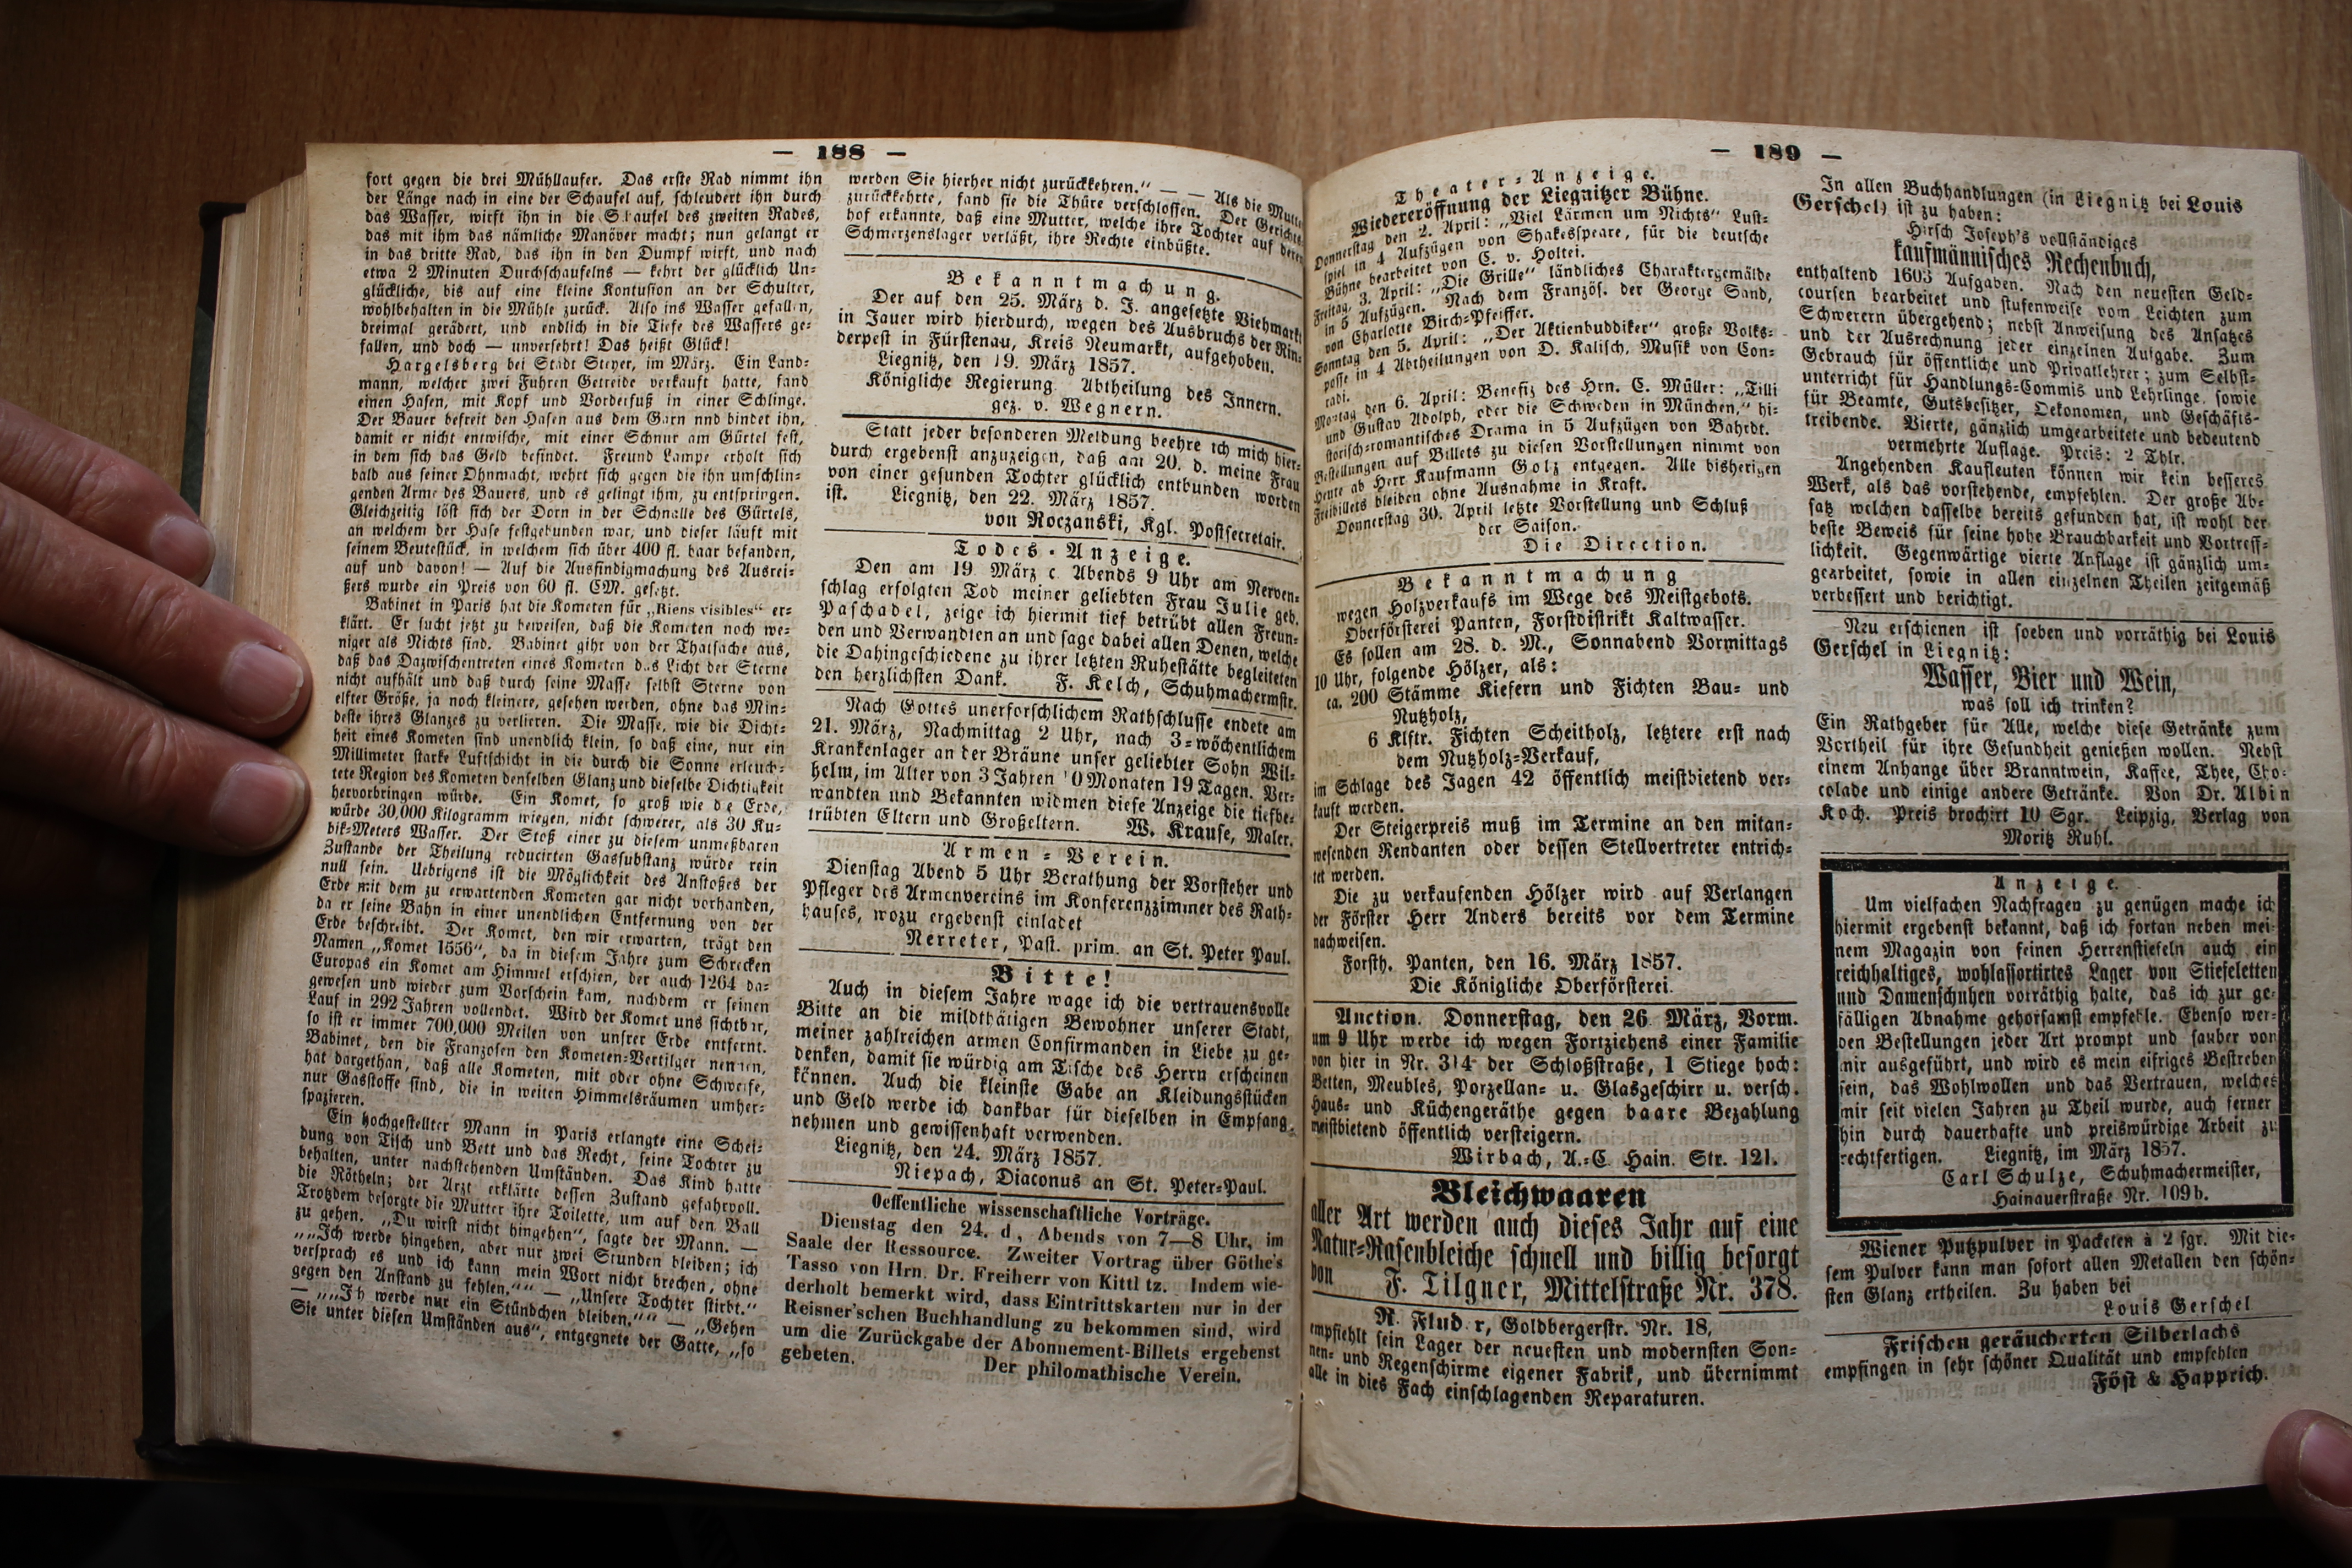 — 188 —
fort gegen die drei Mühllaufer. Das erste Rad nimmt ihn
der Länge nach in eine der Schaufel auf, schleudert ihn durch
das Wasser, wirft ihn in die Schaufel des zweiten Rades,
das mit ihm das nämliche Manöver macht; nun gelangt er
in das dritte Rad, das ihn in den Dumpf wirft, und nach
etwa 2 Minuten Durchschaufelns — kehrt der glücklich Un-
glückliche, bis auf eine kleine Kontusion an der Schulter,
wohlbehalten in die Mühle zurück. Also ins Wasser gefallen,
dreimal gerädert, und endlich in die Tiefe des Wassers ge-
fallen, und doch — unversehrt! Das heißt Glück!
Hargelsberg bei Stadt Steyer, im März. Ein Land-
mann, welcher zwei Fuhren Getreide verkauft hatte, fand
einen Hasen, mit Kopf und Vorderfuß in einer Schlinge.
Der Bauer befreit den Hasen aus dem Garn nnd bindet ihn,
damit er nicht entwische, mit einer Schnur am Gürtel fest,
in dem sich das Geld befindet. Freund Lampe erholt sich
bald aus seiner Ohnmacht, wehrt sich gegen die ihn umschlin-
genden Arme des Bauers, und es gelingt ihm, zu entspringen.
Gleichzeitig löst sich der Dorn in der Schnalle des Gürtels,
an welchem der Hase festgebunden war, und dieser läuft mit
seinem Beutestück, in welchem sich über 400 fl. baar befanden,
auf und davon! — Auf die Ausfindigmachung des Ausrei-
ßers wurde ein Preis von 60 fl. CM. gesetzt.
Babinet in Paris hat die Kometen für „Riens visibles“ er-
klärt. Er sucht jetzt zu beweisen, daß die Kometen noch we-
niger als Nichts sind. Babinet giht von der Thatsache aus,
daß das Dazwischentreten eines Kometen das Licht der Sterne
nicht aufhält und daß durch seine Masse selbst Sterne von
elfter Größe, ja noch kleinere, gesehen werden, ohne das Min-
deste ihres Glanzes zu verlieren. Die Masse, wie die Dicht-
heit eines Kometen sind unendlich klein, so daß eine, nur ein
Millimeter starke Luftschicht in die durch die Sonne erleuch-
tete Region des Kometen denselben Glanz und dieselbe Dichtigkeit
hervorbringen würde. Ein Komet, so groß wie die Erde,
würde 30,000 Kilogramm wiegen, nicht schwerer, als 30 Ku-
bik-Meters Wasser. Der Stoß einer zu diesem unmeßbaren
Zustande der Theilung reducirten Gassubstanz würde rein
null sein. Uebrigens ist die Möglichkeit des Anstoßes der
Erde mit dem zu erwartenden Kometen gar nicht vorhanden,
da er seine Bahn in einer unendlichen Entfernung von der
Erde beschreibt. Der Komet, den wir erwarten, trägt den
Namen „Komet 1556“, da in diesem Jahre zum Schrecken
Europas ein Komet am Himmel erschien, der auch 1264 da-
gewesen und wieder zum Vorschein kam, nachdem er seinen
Lauf in 292 Jahren vollendet. Wird der Komet uns sichtbar,
so ist er immer 700,000 Meilen von unsrer Erde entfernt.
Babinet, den die Franzosen den Kometen-Vertilger nennen,
hat dargethan, daß alle Kometen, mit oder ohne Schweife,
nur Gasstoffe sind, die in weiten Himmelsräumen umher-
spazieren.
Ein hochgestellter Mann in Paris erlangte eine Schei-
dung von Tisch und Bett und das Recht, seine Tochter zu
behalten, unter nachstehenden Umständen. Das Kind hatte
die Rötheln; der Arzt erklärte dessen Zustand gefahrvoll.
Trotzdem besorgte die Mutter ihre Toilette, um auf den Ball
zu gehen. „Du wirst nicht hingehen“, sagte der Mann. —
„„Ich werde hingehen, aber nur zwei Stunden bleiben; ich
versprach es und ich kann mein Wort nicht brechen, ohne
gegen den Anstand zu fehlen.““ — „Unsere Tochter stirbt.“
— „„Ich werde nur ein Stündchen bleiben.““ — „Gehen
Sie unter diesen Umständen aus“, entgegnete der Gatte, „so
werden Sie hierher nicht zurückkehren.“ — — Als die Mutter
zurückkehrte, fand sie die Thüre verschlossen. Der Gerichts-
hof erkannte, daß eine Mutter, welche ihre Tochter auf deren
Schmerzenslager verläßt, ihre Rechte einbüßte.
Bekanntmachung.
Der auf den 25. März d. J. angesetzte Viehmarkt
in Jauer wird hierdurch, wegen des Ausbruchs der Rin-
derpest in Fürstenau, Kreis Neumarkt, aufgehoben.
Liegnitz, den 19. März 1857.
Königliche Regierung Abtheilung des Innern.
gez. v. Wegnern.
Statt jeder besonderen Meldung beehre ich mich hier-
durch ergebenst anzuzeigen, daß am 20. d. meine Frau
von einer gesunden Tochter glücklich entbunden worden
ist. Liegnitz, den 22. März 1857.
von Roczanski, Kgl. Postsecretair.
Todes-Anzeige.
Den am 19 März c. Abends 9 Uhr am Nerven-
schlag erfolgten Tod meiner geliebten Frau Julie geb.
Paschadel, zeige ich hiermit tief betrübt allen Freun-
den und Verwandten an und sage dabei allen Denen, welche
die Dahingeschiedene zu ihrer letzten Ruhestätte begleiteten
den herzlichsten Dank. F. Kelch, Schuhmachermstr.
Nach Gottes unerforschlichem Rathschlusse endete am
21. März, Nachmittag 2 Uhr, nach 3-wöchentlichem
Krankenlager an der Bräune unser geliebter Sohn Wil-
helm, im Alter von 3 Jahren 10 Monaten 19 Tagen. Ver-
wandten und Bekannten widmen diese Anzeige die tiefbe-
trübten Eltern und Großeltern. W. Krause, Maler.
Armen-Verein.
Dienstag Abend 5 Uhr Berathung der Vorsteher und
Pfleger des Armenvereins im Konferenzzimmer des Rath-
hauses, wozu ergebenst einladet
Nerreter, Past. prim. an St. Peter Paul.
Bitte!
Auch in diesem Jahre wage ich die vertrauensvolle
Bitte an die mildthätigen Bewohner unserer Stadt,
meiner zahlreichen armen Confirmanden in Liebe zu ge-
denken, damit sie würdig am Tische des Herrn erscheinen
können. Auch die kleinste Gabe an Kleidungsstücken
und Geld werde ich dankbar für dieselben in Empfang
nehmen und gewissenhaft verwenden.
Liegnitz, den 24. März 1857.
Niepach, Diaconus an St. Peter-Paul.
Oeffentliche wissenschaftliche Vorträge.
Dienstag den 24. d, Abends von 7—8 Uhr, im
Saale der Ressource. Zweiter Vortrag über Göthe's
Tasso von Hrn. Dr. Freiherr von Kittl tz. Indem wie-
derholt bemerkt wird, dass Eintrittskarten nur in der
Reisner'schen Buchhandlung zu bekommen sind, wird
um die Zurückgabe der Abonnement-Billets ergebenst
gebeten. Der philomathische Verein.
— 189 —
Theater-Anzeige.
Wiedereröffnung der Liegnitzer Bühne.
Donnerstag den 2. April: „Viel Lärmen um Nichts“ Lust-
spiel in 4 Aufzügen von Shakesspeare, für die deutsche
Bühne bearbeitet von C. v. Holtei.
Freitag, 3. April: „Die Grille“ ländliches Charaktergemälde
in 5 Aufzügen. Nach dem Französ. der George Sand,
von Charlotte Birch-Pfeiffer.
Sonntag den 5. April: „Der Aktienbuddiker“ große Volks-
posse in 4 Abtheilungen von D. Kalisch, Musik von Con-
radi.
Montag den 6. April: Benefiz des Hrn. C. Müller: „Tilli
und Gustav Adolph, oder die Schweden in München,“ hi-
storisch-romantisches Drama in 5 Aufzügen von Bahrdt.
Bestellungen auf Billets zu diesen Vorstellungen nimmt von
heute ab Herr Kaufmann Golz entgegen. Alle bisherigen
Freibillets bleiben ohne Ausnahme in Kraft.
Donnerstag 30. April letzte Vorstellung und Schluß
der Saison.
Die Direction.
Bekanntmachung
wegen Holzverkaufs im Wege des Meistgebots.
Oberförsterei Panten, Forstdistrikt Kaltwasser.
Es sollen am 28. d. M., Sonnabend Vormittags
10 Uhr, folgende Hölzer, als:
ca. 200 Stämme Kiefern und Fichten Bau- und
Nutzholz,
6 Klftr. Fichten Scheitholz, letztere erst nach
dem Nutzholz-Verkauf,
im Schlage des Jagen 42 öffentlich meistbietend ver-
kauft werden.
Der Steigerpreis muß im Termine an den mitan-
wesenden Rendanten oder dessen Stellvertreter entrich-
tet werden.
Die zu verkaufenden Hölzer wird auf Verlangen
der Förster Herr Anders bereits vor dem Termine
nachweisen.
Forsth. Panten, den 16. März 1857.
Die Königliche Oberförsterei.
Auction. Donnerstag, den 26. März, Vorm.
um 9 Uhr werde ich wegen Fortziehens einer Familie
von hier in Nr. 314 der Schloßstraße, 1 Stiege hoch:
Betten, Meubles, Porzellan- u. Glasgeschirr u. versch.
Haus- und Küchengeräthe gegen baare Bezahlung
meistbietend öffentlich versteigern.
Wirbach, A.-C. Hain. Str. 121.
Bleichwaaren
aller Art werden auch dieses Jahr auf eine
Natur-Rasenbleiche schnell und billig besorgt
von F. Tilgner, Mittelstraße Nr. 378.
R. Flud r, Goldbergerstr. Nr. 18,
empfiehlt sein Lager der neuesten und modernsten Son-
nen- und Regenschirme eigener Fabrik, und übernimmt
alle in dies Fach einschlagenden Reparaturen.
In allen Buchhandlungen (in Liegnitz bei Louis
Gerschel) ist zu haben:
Hirsch Joseph's vollständiges
kaufmännisches Rechenbuch,
enthaltend 1603 Aufgaben. Nach den neuesten Geld-
coursen bearbeitet und stufenweise vom Leichten zum
Schwerern übergehend; nebst Anweisung des Ansatzes
und der Ausrechnung jeder einzelnen Aufgabe. Zum
Gebrauch für öffentliche und Privatlehrer; zum Selbst-
unterricht für Handlungs-Commis und Lehrlinge, sowie
für Beamte, Gutsbesitzer, Oekonomen, und Geschäfts-
treibende. Vierte, gänzlich umgearbeitete und bedeutend
vermehrte Auflage. Preis: 2 Thlr.
Angehenden Kaufleuten können wir kein besseres
Werk, als das vorstehende, empfehlen. Der große Ab-
satz welchen dasselbe bereits gefunden hat, ist wohl der
beste Beweis für seine hohe Brauchbarkeit und Vortreff-
lichkeit. Gegenwärtige vierte Auflage ist gänzlich um-
gearbeitet, sowie in allen einzelnen Theilen zeitgemäß
verbessert und berichtigt.
Neu erschienen ist soeben und vorräthig bei Louis
Gerschel in Liegnitz:
Wasser, Bier und Wein,
was soll ich trinken?
Ein Rathgeber für Alle, welche diese Getränke zum
Vortheil für ihre Gesundheit genießen wollen. Nebst
einem Anhange über Branntwein, Kaffee, Thee, Cho-
colade und einige andere Getränke. Von Dr. Albin
Koch. Preis brochirt 10 Sgr. Leipzig, Verlag von
Moritz Ruhl.
Anzeige.
Um vielfachen Nachfragen zu genügen mache ich
hiermit ergebenst bekannt, daß ich fortan neben mei-
nem Magazin von feinen Herrenstiefeln auch ein
reichhaltiges, wohlassortirtes Lager von Stiefeletten
und Damenschuhen vorräthig halte, das ich zur ge-
fälligen Abnahme gehorsamst empfehle. Ebenso wer-
den Bestellungen jeder Art prompt und sauber von
mir ausgeführt, und wird es mein eifriges Bestreben
sein, das Wohlwollen und das Vertrauen, welches
mir seit vielen Jahren zu Theil wurde, auch ferner
hin durch dauerhafte und preiswürdige Arbeit zu
rechtfertigen. Liegnitz, im März 1857.
Carl Schulze, Schuhmachermeister,
Hainauerstraße Nr. 109b.
Wiener Putzpulver in Packeten à 2 sgr. Mit die-
sem Pulver kann man sofort allen Metallen den schön-
sten Glanz ertheilen. Zu haben bei
Louis Gerschel
Frischen geräucherten Silberlachs
empfingen in sehr schöner Qualität und empfehlen
Föst & Happrich.